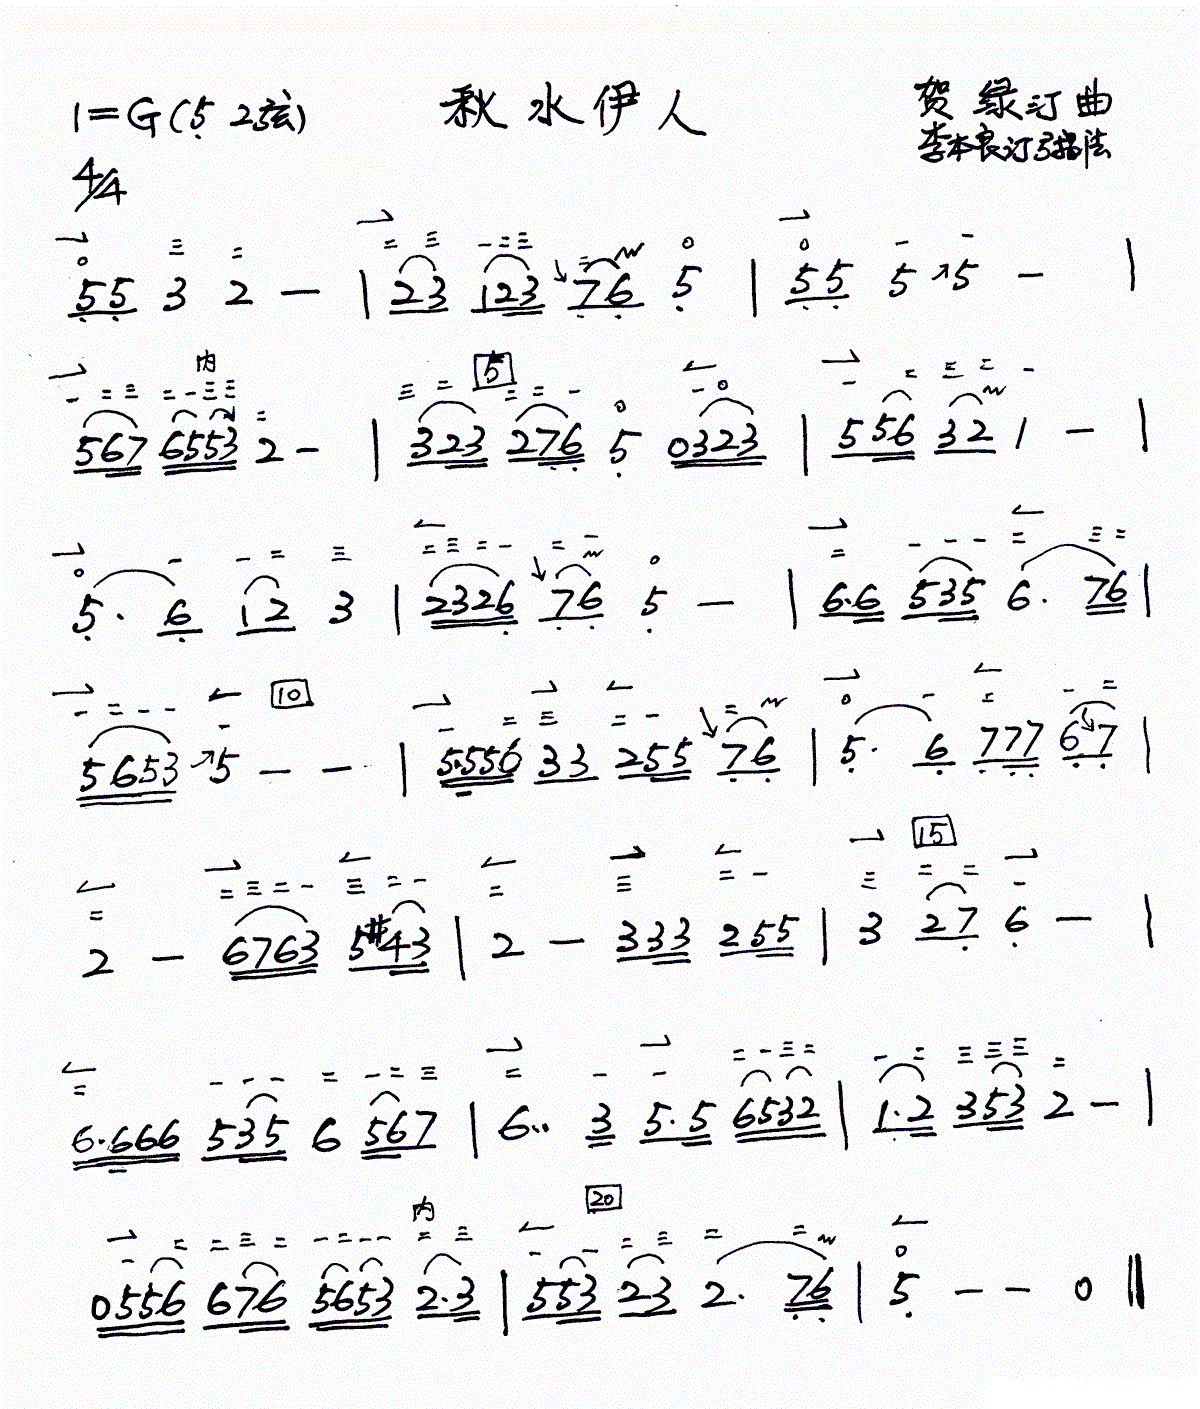 1=G(5 2弦) 秋水伊人 贺绿汀曲
4/4 李本良订弓指法
55 3 2 — | 23 123 76 5 | 55 5 ↗5 — |
内 5
567 6553 2 — | 323 276 5 0323 | 556 32 1 — |
5· 6 12 3 | 2326 76 5 — | 6·6 535 6· 76 |
10
5653 ↗5 — — | 5·556 33 255 76 | 5· 6 777 67 |
15
2 — 6763 5#43 | 2 — 333 255 | 3 27 6 — |
6·666 535 6 567 | 6·· 3 5·5 6532 | 1·2 353 2 — |
内 20
0556 676 5653 2·3 | 553 23 2· 76 | 5 — — 0 ‖